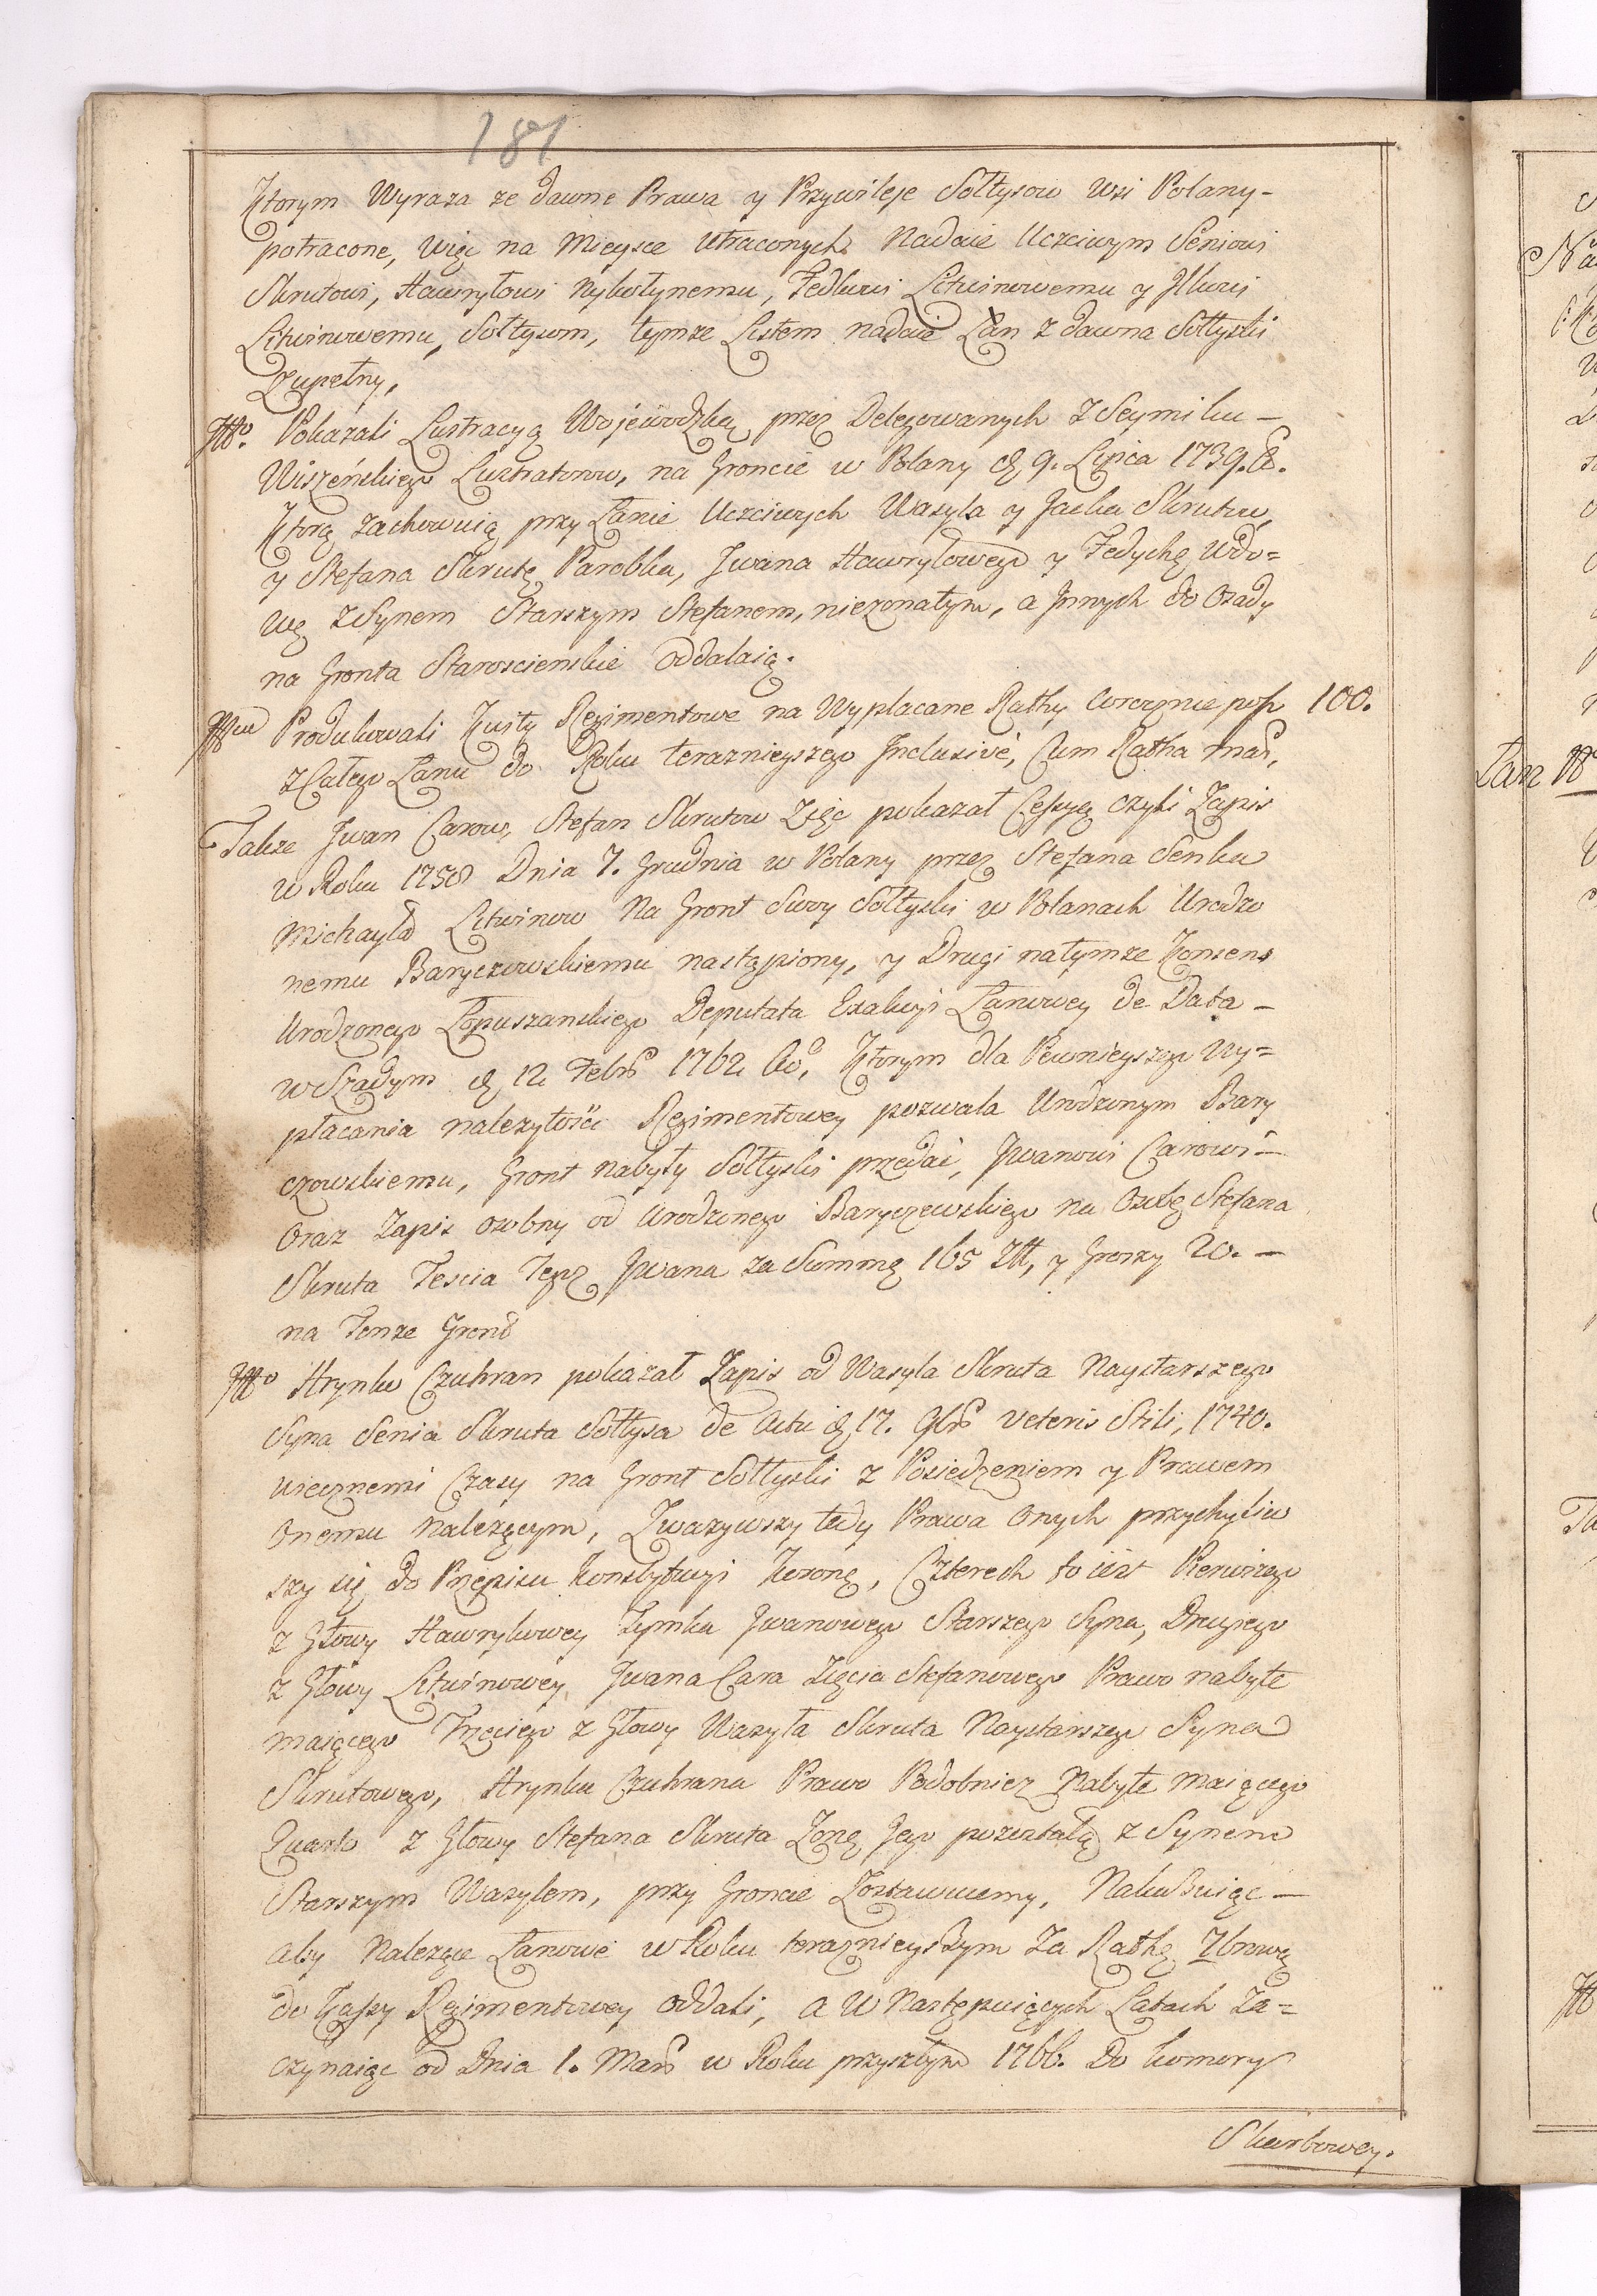 181
Ktorym Wyraza ze dawne Prawa y Przywileje Sołtysow wsi Polany-
potracone, więc na Mieysce utraconych Nadaie Uczciwym Seniowi
Skrutowi, Hawryłowi Fedkowi Litwinowemu y Ilkowi
Litwinowemu, Sołtysom, tymze Listem nadaie Łan z dawna Sołtyski
Zupełny,
Itto. Pokazali Lustracyą Wojewodzką przez Delegowanych z Seymiku-
Wiszeńskiego Lustratorow, na Groncie w Polany d. 9. Lipca 1739.
Ktorą zachowuią przy Łanie Uczciwych Wasyla y Jaska Skrutow,
y Stefana Skrutę Parobka, Jwana Hawryłowego y Fedychę Wdo=
wę z Synem Starszym Stefanem, niezonatym, a Jnnych do Osady
na Gronta Starościenskie oddalaią.
Produkowali Kwity Regimentowe na Wypłacane Rathy corocznie po 100.
z Całego Łanu do Roku teraznieyszego Inclusivé, Cum Ratha Mar,
Takze Jwan Carow, Stefan Skrutow Zięc pokazał Cessyę czyli Zapis
w Roku 1758 Dnia 7. Grudnia w Polany przez Stefana Senka
Michayła Litwinow Na Gront Swoy Sołtyski w Polanach Urodzo
nemu Baryczowskiemu nastąpiony, y Drugi na tymze Konsens
Urodzonego Łopuszanskiego Deputata Exakcyi Łanowey de Data-
w Sządym d. 12 Febr 1762 Ao, Ktorym dla Pewnieyszego Wy=
płacania nalezytości Regimentowey pozwala Urodzonym Bary
czowskiemu, Gront nabyty Sołtyski przedać, Jwanowi Carowi-
Oraz Zapis osobny od Urodzonego Baryczewskiego na Osobę Stefana
Skruta Tescia Tegoz Jwana za Summę 165 Zł, y Groszy 20.-
na Tenze Gront
Itto Hrynko Czuhran pokazał Zapis od Wasyla Skruta Naystarszego
Syna Senia Skruta Sołtysa de Actu d. 17. 9br Veteris Stili, 1740.
wiecznemi Czasy na Gront Sołtyski z Posiedzeniem y Prawem
Onemu Nalezącym, Zwazywszy tedy Prawa Onych przychyliw
szy się do Przepisu Konstytucyi Koronę, Czterech to iest Pierwszego
z Głowy Hawryłowey Tymka Jwanowego Starszego Syna, Drugiego
z Głowy Litwinowey, Jwana Cara Zięcia Stefanowego Prawo nabyte
maiącego Trzeciego z Głowy Wasyla Skruta Naystarszego Syna
Skrutowego, Hrynka Czuhrana Prawo Podobniez Nabyte maiącego
Quarto z Głowy Stefana Skruta Zonę Jego pozostałą z Synem
Starszym Wasylem, przy Groncie Zostawuiemy, Nakazuiąc-
aby Nalezące Łanowe w Roku teraznieyszym za Rathę 7brową
do Kassy Regimentowey oddali, a w Następuiących Latach Za=
czynaiąc od Dnia 1. Mar w Roku przyszłym 1766. Do Komory
Skarbowey.